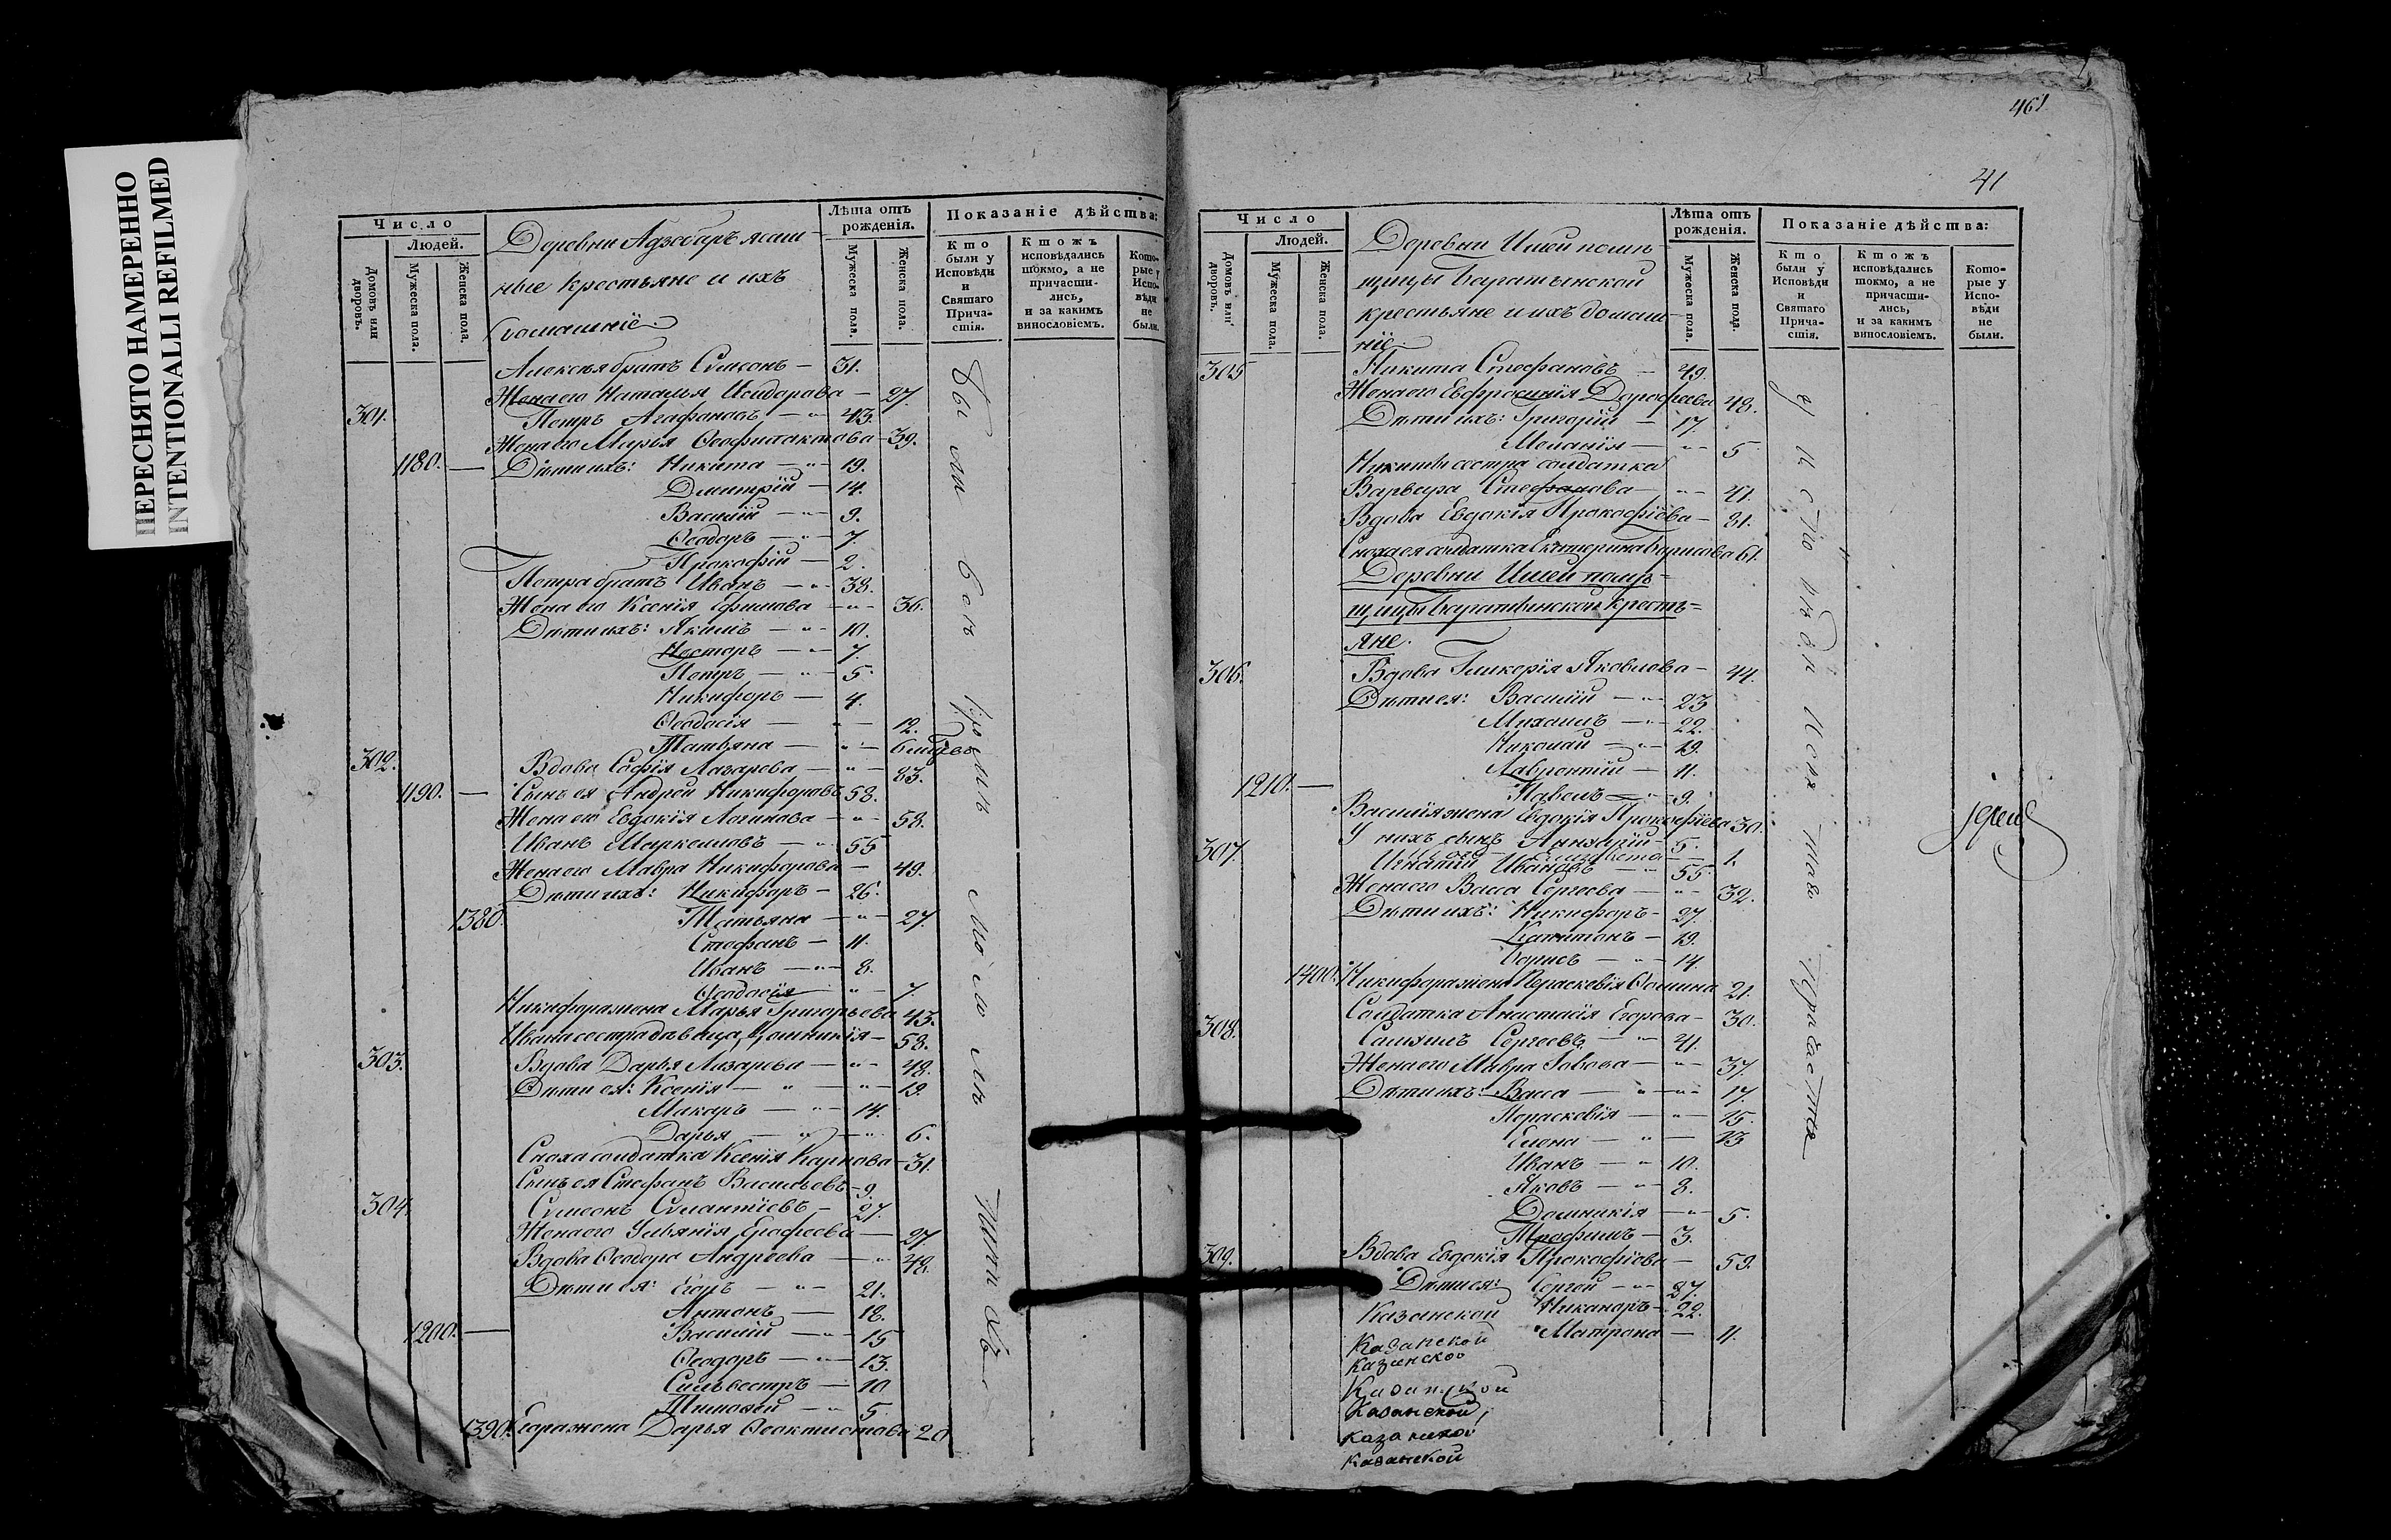 ПЕРЕСНЯТО НАМЕРЕННО
INTENTIONALLI REFILMED
Число
Людей.
Домовъ или дворовъ.
Мужеска пола.
Женска пола.
Деревни
ные крестьяне и ихъ
домашніе.
Лѣта отъ рожденія.
Мужеска пола.
Женска пола.
Показаніе дѣйства:
Кто были у Исповѣди и Святаго Причастія.
Ктожъ исповѣдались токмо, а не причастились, и за какимъ винословіемъ.
Которые у Исповѣди не были.
Алексѣя братъ Сѵмеонъ — 31.
Жена его Наталья Исидорова — 27.
301. Петръ Агафоновъ — 43.
Жена его Марья Ѳеофилактова — 39.
1180. — Дѣти ихъ: Никита — 19.
Дмитрій — 14.
Василій — 9.
Ѳеодоръ — 7.
Прокофій — 2.
Петра братъ Иванъ — 38.
Жена его Ксенія Ефимова — 36.
Дѣти ихъ: Якимъ — 10.
Несторъ — 7.
Петръ — 5.
Никифоръ — 4.
Ѳеодосія — 12.
Татьяна — 6
302. Вдова Софія Лазарева — 83.
1190. — Сынъ ея Андрей Никифоровъ 58.
Жена его Евдокія Логинова — 58.
Иванъ Маркелловъ — 55
Жена его Мавра Никифорова — 49.
Дѣти ихъ: Никифоръ — 26.
1380. Татьяна — 27.
Стефанъ — 11.
Иванъ — 8.
Ѳеодосія — 7.
Никифора жена Марья Григорьева 43.
Ивана сестра дѣвица Домникія — 58.
303. Вдова Дарья Лазарева — 48.
Дѣти ея: Ксенія — 19.
Макаръ — 14.
Дарья — 6.
Сноха солдатка Ксенія Карпова — 31.
Сынъ ея Стефанъ Васильевъ — 9.
304. Сѵмеонъ — 27.
Жена его Ульянія Ерофеева — 27
Вдова Ѳеодора Андреева — 48.
Дѣти ея: Егоръ — 21.
Антонъ — 18.
1200. — Василій — 15
Ѳеодоръ — 13.
Сильвестръ — 10
Тимофей — 5.
1390. Егора жена Дарья Ѳеоктистова 20
461.
41
Число
Людей.
Домовъ или дворовъ.
Мужеска пола.
Женска пола.
Деревни Ишеи помѣ-
щицы Баратынской
крестьяне и ихъ домаш-
ніе.
Лѣта отъ рожденія.
Мужеска пола.
Женска пола.
Показаніе дѣйства:
Кто были у Исповѣди и Святаго Причастія.
Ктожъ исповѣдались токмо, а не причастились, и за какимъ винословіемъ.
Которые у Исповѣди не были.
305 Никита Стефановъ — 49.
Жена его Евфросинія Дорофеева 48.
Дѣти ихъ: Григорій — 17
Меланія — 5
Никиты сестра солдатка
Варвара Стефанова — 41.
Вдова Евдокія Прокофіева — 81.
Сноха ея солдатка Екатерина Борисова 61.
Деревни Ишеи помѣ=
щицы Баратынской кресть=
яне.
306. Вдова Гликерія Яковлева — 44.
Дѣти ея: Василій — 23
Михаилъ — 22.
Николай — 19.
Лаврентій — 11.
1210. — Павелъ — 9.
Василія жена Евдокія Прокофіева 30.
У нихъ сынъ — 5.
Елизавета — 1.
307. Игнатій Ивановъ — 55.
Жена его Васса Сергеева — 32.
Дѣти ихъ: Никифоръ — 27.
Капитонъ — 19.
Борисъ — 14.
1400. Никифора жена Пераскевія Ѳомина 21.
Солдатка Анастасія Егорова — 30.
308. Самуилъ Сергеевъ — 41.
Жена его Мавра — 37.
Дѣти ихъ: Васса — 17.
Пераскевія — 15.
Елена — 13
Иванъ — 10.
Яковъ — 8.
Домникія — 5.
Трофимъ — 3.
309. Вдова Евдокія Прокофіева — 59.
Дѣти ея: Сергей — 27.
Казанской Никаноръ — 22.
Казанской Матрона — 11.
Казанской
Казанской
Казанской
Казанской
Казанской